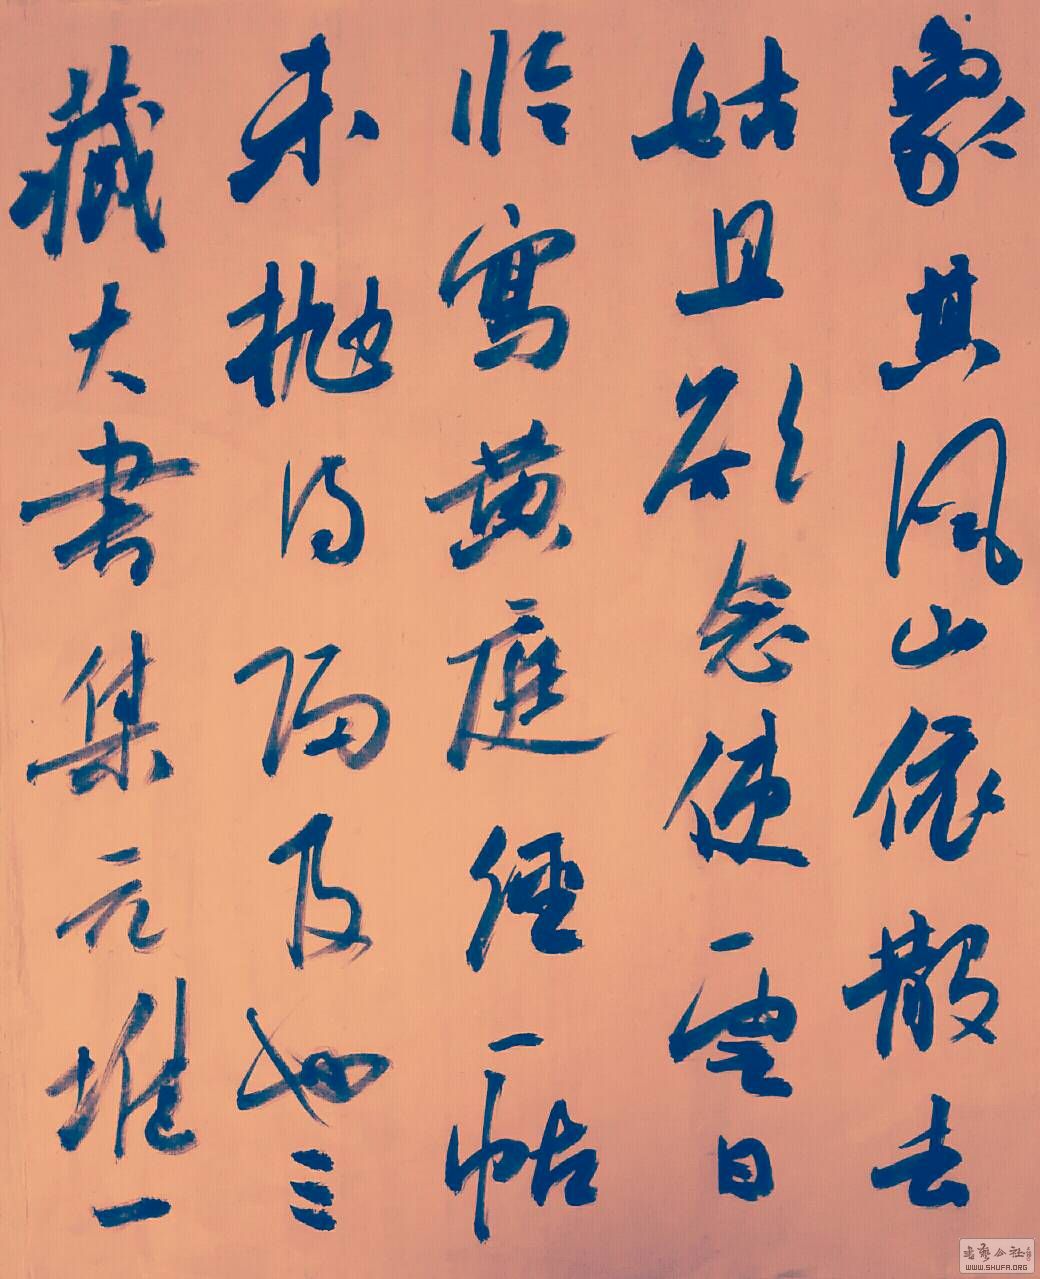 象其风山依散去
姑且念使一日
临寫黄庭経一帖
未抛得隔及如三
藏大書集元堆一
書藝公社
WWW.SHUFA.ORG